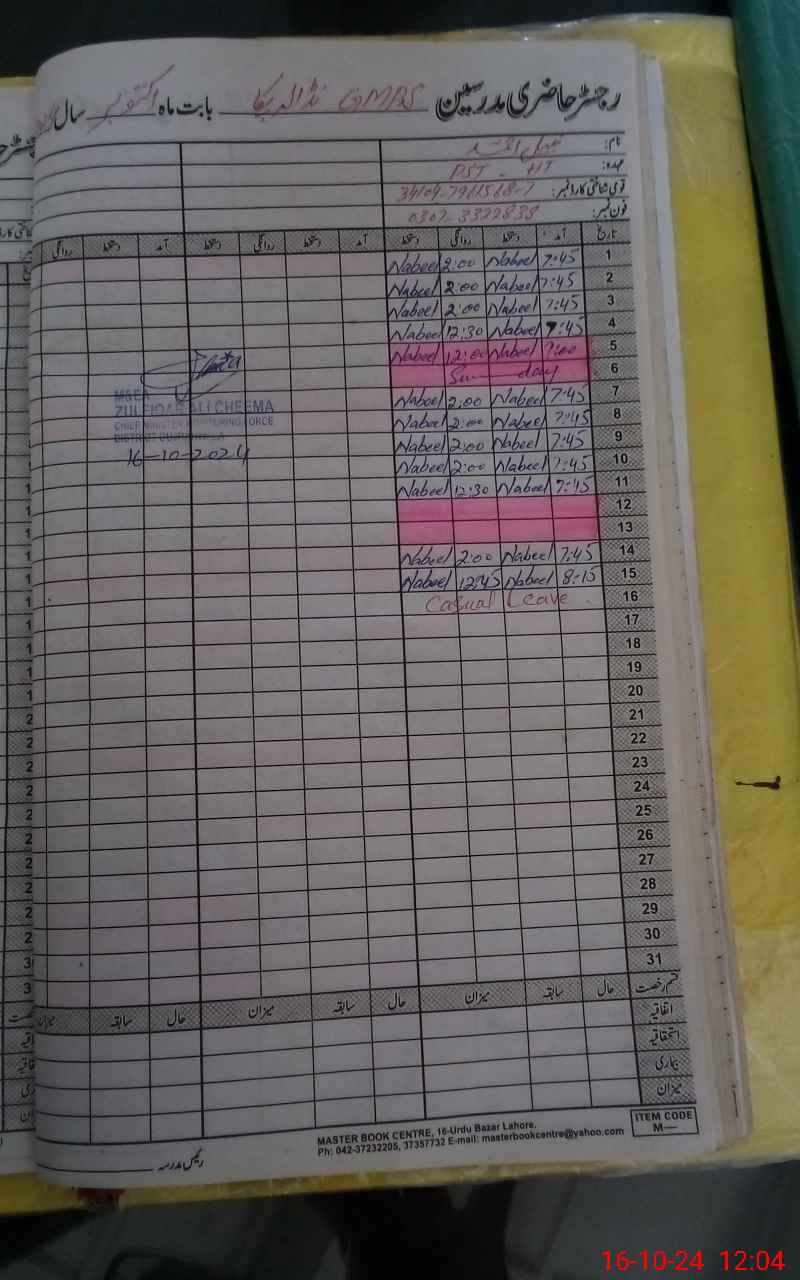 رجسٹر حاضری مدرسین GMPS بابت ماہ اکتوبر سال
نام:
عہدہ: PST - HT
قومی شناختی کارڈ نمبر:
فون نمبر: 0307-3322838
تاریخ آمد دستخط روانگی دستخط آمد دستخط روانگی دستخط آمد دستخط روانگی
1 7:45 Nabeel 2:00 Nabeel
2 7:45 Nabeel 2:00 Nabeel
3 7:45 Nabeel 2:00 Nabeel
4 7:45 Nabeel 12:30 Nabeel
5 9:00 Nabeel 12:00 Nabeel
6 Sunday
7 7:45 Nabeel 2:00 Nabeel
8 7:45 Nabeel 2:00 Nabeel
9 7:45 Nabeel 2:00 Nabeel
10 7:45 Nabeel 2:00 Nabeel
11 7:45 Nabeel 12:30 Nabeel
12
13
14 7:45 Nabeel 2:00 Nabeel
15 8:15 Nabeel 12:45 Nabeel
16 Casual Leave
17
18
19
20
21
22
23
24
25
26
27
28
29
30
31
M&EA
ZULFIQAR ALI CHEEMA
CHIEF MINISTER MONITORING FORCE
DISTRICT
16-10-2024
قسم رخصت حال سابقہ میزان حال سابقہ میزان حال سابقہ میزان
اتفاقیہ
استحقاقیہ
بیماری
میزان
رئیس مدرسہ
MASTER BOOK CENTRE, 16-Urdu Bazar Lahore.
Ph: 042-37232205, 37357732 E-mail: masterbookcentre@yahoo.com
ITEM CODE
M—
16-10-24 12:04